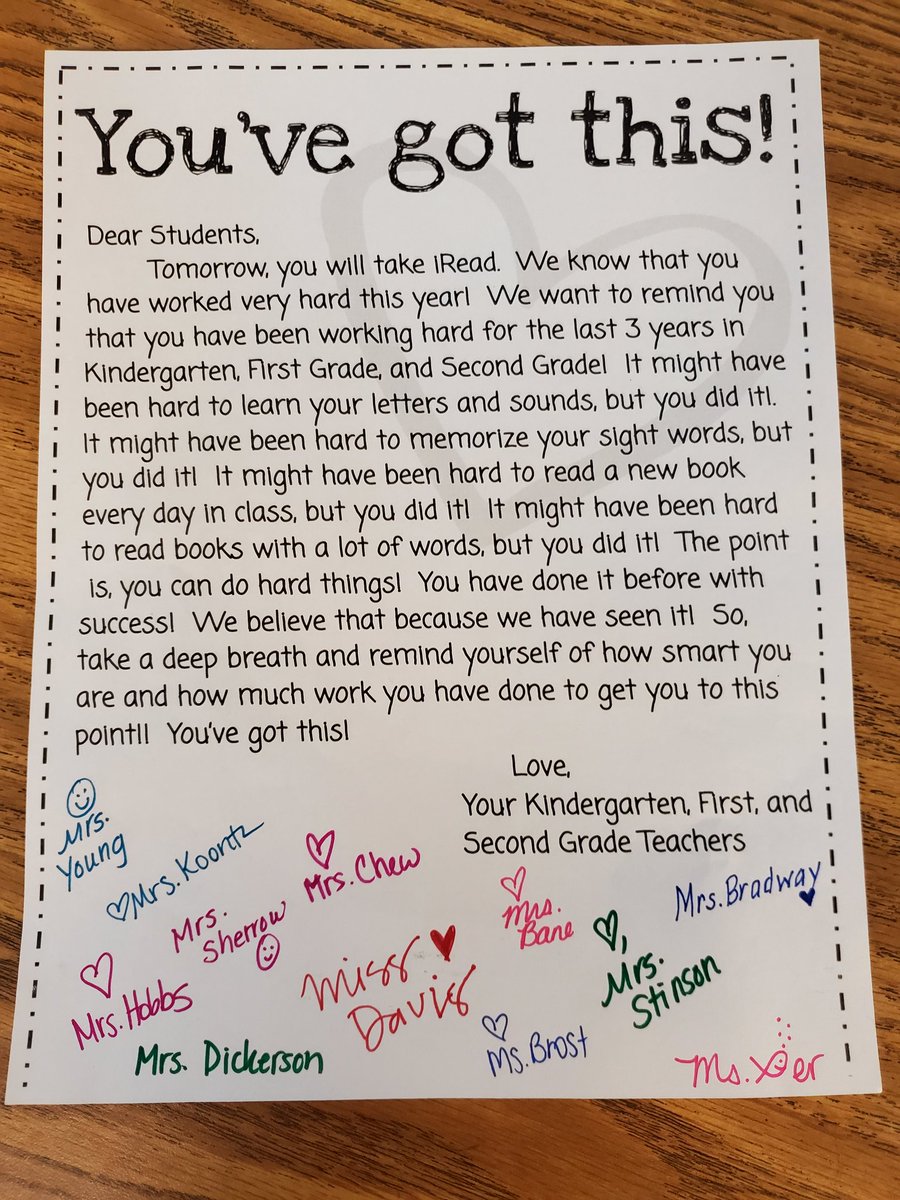 You've got this!
Dear Students,
Tomorrow, you will take iRead. We know that you
have worked very hard this year! We want to remind you
that you have been working hard for the last 3 years in
Kindergarten, First Grade, and Second Grade! It might have
been hard to learn your letters and sounds, but you did it!.
It might have been hard to memorize your sight words, but
you did it! It might have been hard to read a new book
every day in class, but you did it! It might have been hard
to read books with a lot of words, but you did it! The point
is, you can do hard things! You have done it before with
success! We believe that because we have seen it! So,
take a deep breath and remind yourself of how smart you
are and how much work you have done to get you to this
point!! You've got this!
Love,
Your Kindergarten, First, and
Second Grade Teachers
Mrs.
Young
Mrs. Koontz
Mrs. Chew
Mrs.
Sherrow
Mrs.
Bane
Mrs. Bradway
Mrs. Hobbs
Miss
Davis
Mrs.
Stinson
Mrs. Dickerson
Ms. Brost
Ms.